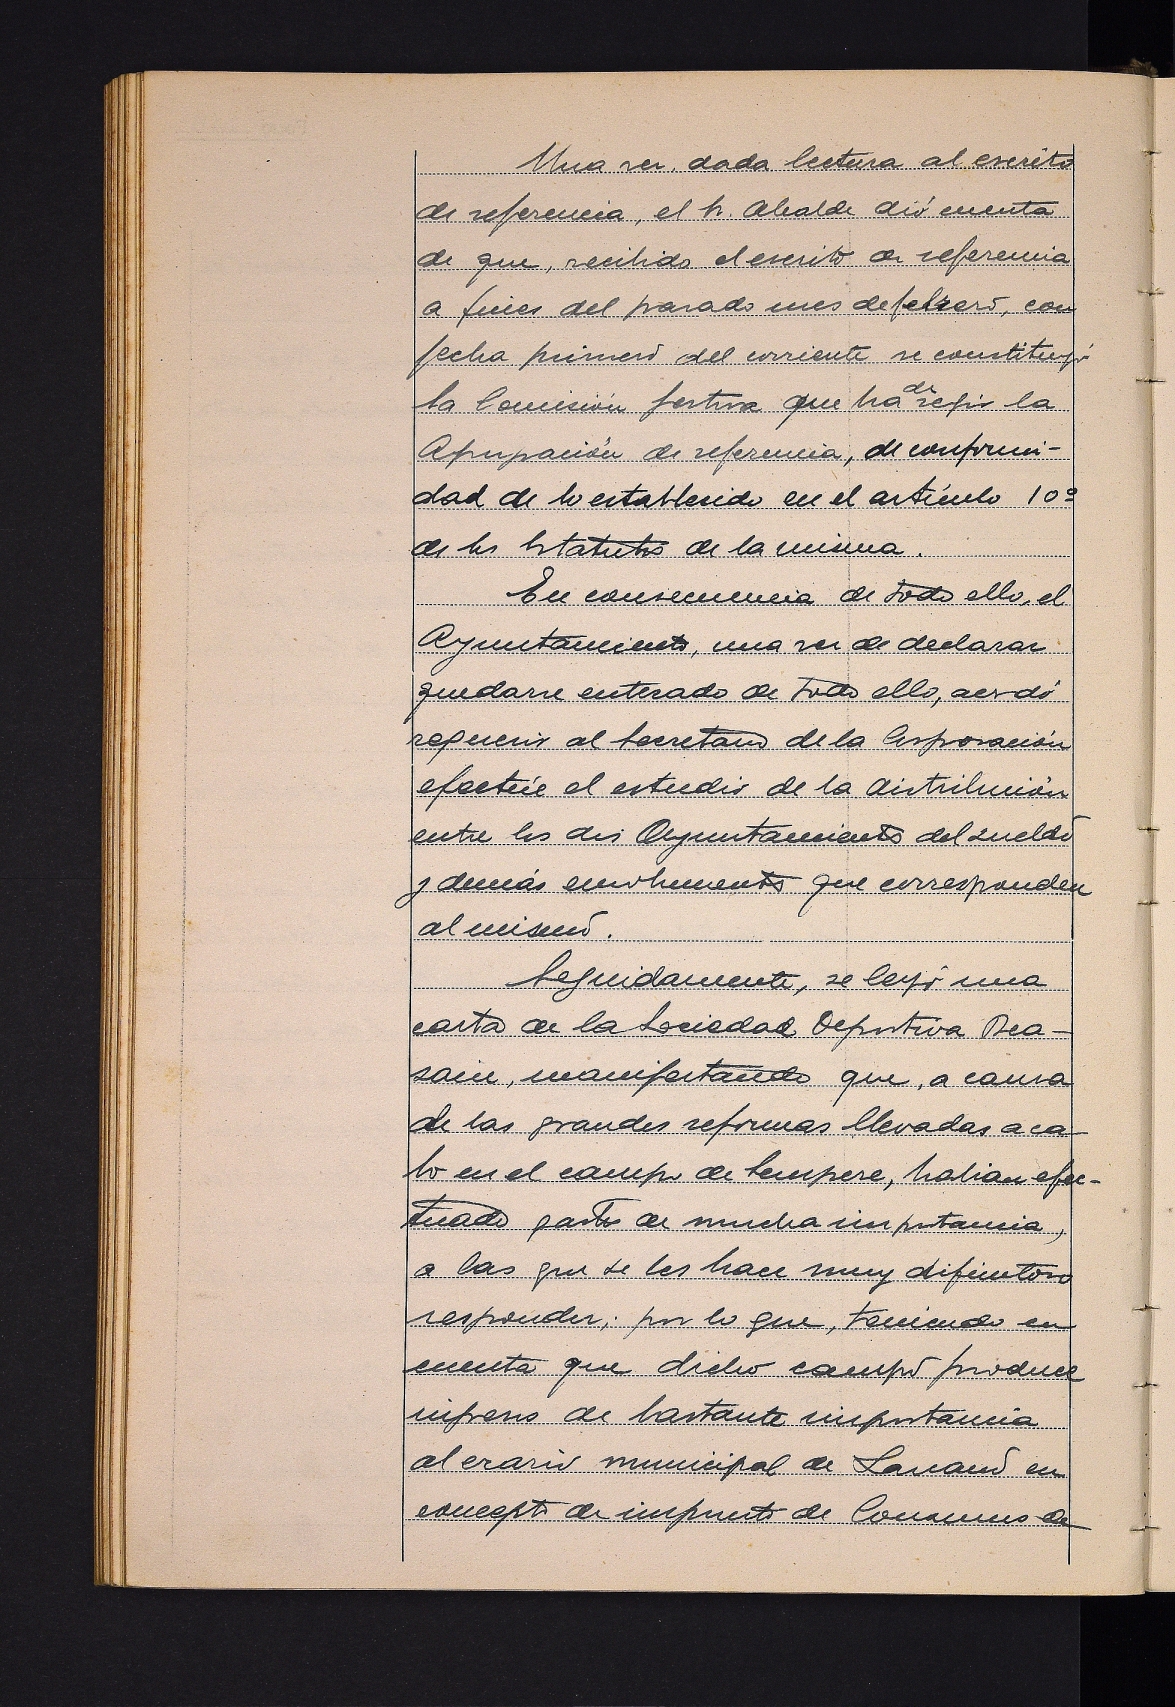 Una vez, dada lectura al escrito
de referencia, el Sr. Alcalde dió cuenta
de que, recibido el escrito de referencia
a fines del pasado mes de febrero, con
fecha primero del corriente se constituyó
la Comisión gestora que ha de regir la
Agrupación de referencia, de conformi-
dad de lo establecido en el artículo 10º
de los Estatutos de la misma.
En consecuencia de todo ello, el
Ayuntamiento, una vez de declarar
quedarse enterado de todo ello, acordó
requerir al Secretario de la Corporación
efectúe el estudio de la distribución
entre los dos Ayuntamientos del sueldo
y demás emolumentos que corresponden
al mismo.
Seguidamente, se leyó una
carta de la Sociedad Deportiva Bea-
sain, manifestando que, a causa
de las grandes reformas llevadas a ca-
bo en el campo de Sempere, habian efec-
tuado gastos de mucha importancia,
a las que se les hace muy dificultoso
responder; por lo que, teniendo en
cuenta que dicho campo produce
ingresos de bastante importancia
al erario municipal de Lazcano en
concepto de impuesto de Consumos de